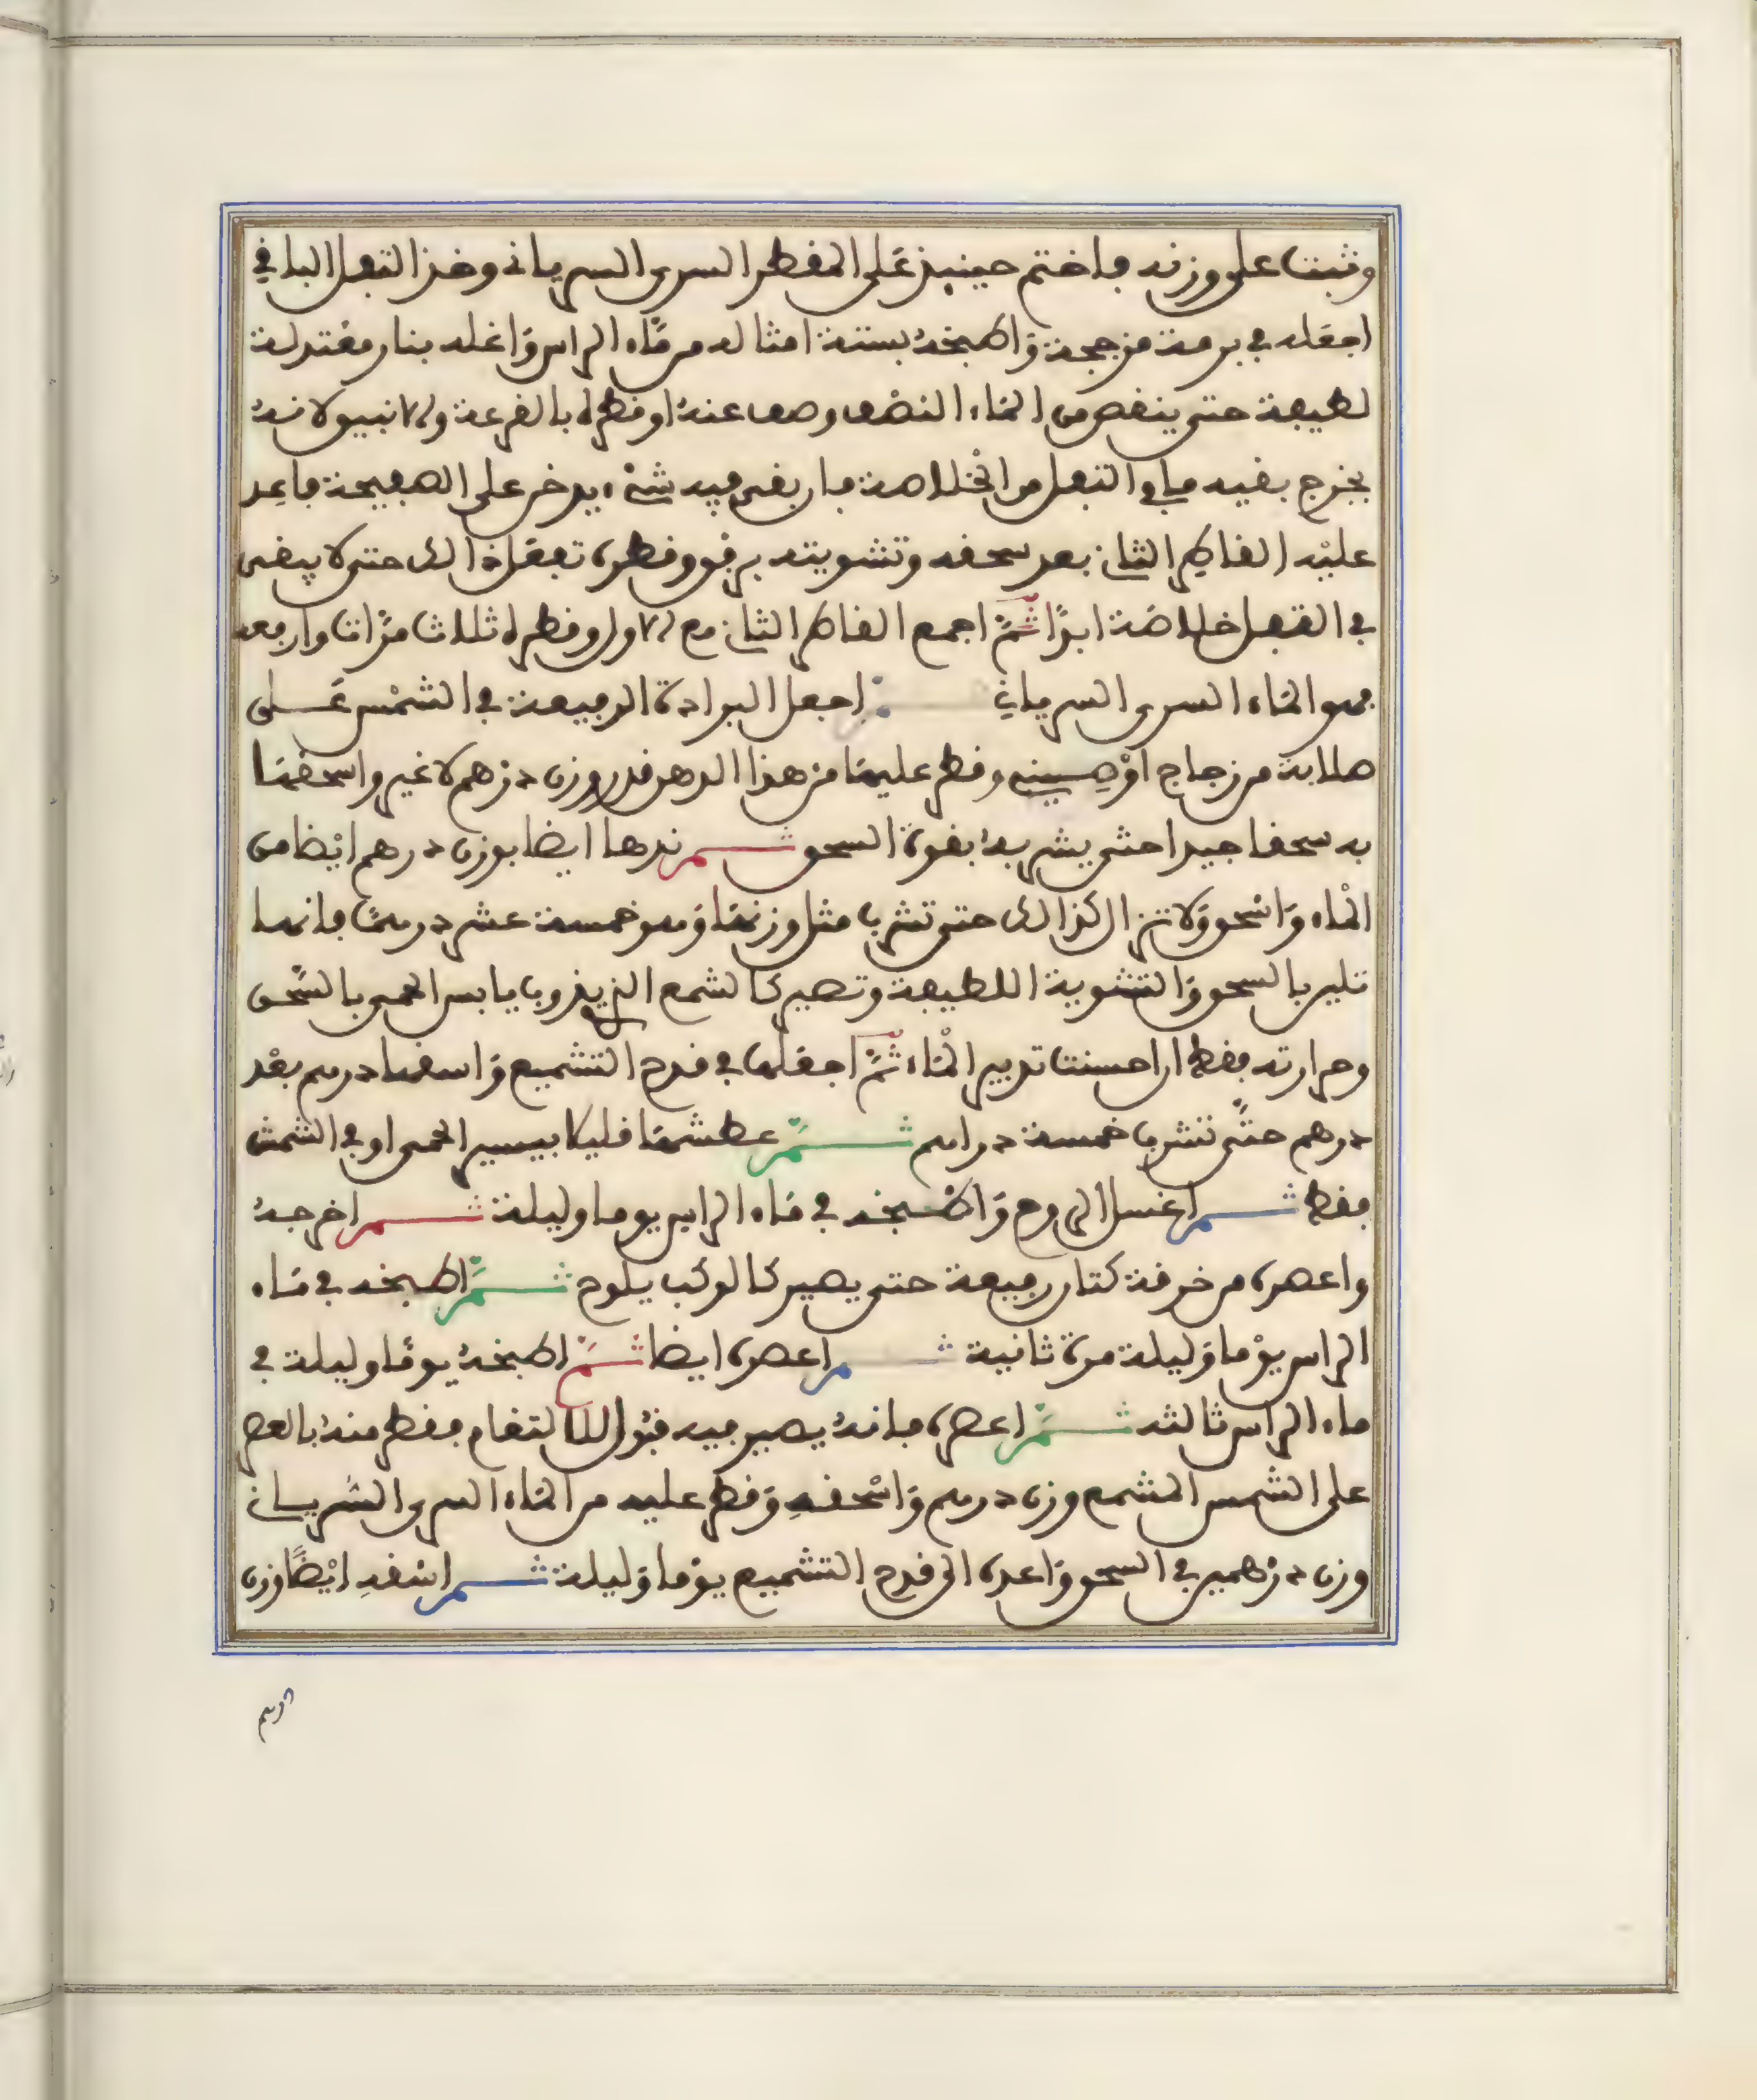 وثبت على وزنه فاختم حينيذ على المقطر السرى السريانى وخذ التفل الباقي
اجعله في برمة مزججة واطبخه بستة امثاله من ماء الراس واغله بنار معتدلة
لطيفة حتى ينقص من الماء النصف وصف عنه او قطره بالقرعة والانبيق لانه
يخرج بقية ما في التفل من الخلاصة فان بقي فيه شيء يدخن على الصفيحة فاعد
عليه القاطر الثاني بعد سحقه وتشويته برفق وقطره تفعل ذالك حتى لا يبقى
في التفل خلاصة ابدا ثم اجمع القاطر الثاني مع الاول وقطره ثلاث مرات وارفعه
فهو الماء السرى السرياني ثم اجعل البرادة الرفيعة في الشمس على
صلابة من زجاج او صيني وقطر عليها من هذا الدهن قدر وزن درهم لا غير واسحقها
به سحقا جيدا حتى يشربه بقوة السحق ثم ندها ايضا بوزن درهم ايضا من
الماء واسحق ولا تزال كذالك حتى تشرب مثل وزنها وهو خمسة عشر درهما فانها
تلين بالسحق والتشوية اللطيفة وتصير كالشمع الذي يذوب يابس الحمى بالسحق
وحرارته فقط ان احسنت تدبير الماء ثم اجعلها في قدح التشميع واسقها درهم بعد
درهم حتى تشرب خمسة دراهم ثم عطشها قليلا بيسير الحمى او في الشمش
فقط ثم اغسل الروح واطبخه في ماء الراس يوما وليلة ثم اخرجه
واعصره من خرقة كتان رفيعة حتى يصير كالوكب يلوح ثم اطبخه في ماء
الراس يوما وليلة مرة ثانية ثم اعصره ايضا ثم اطبخه يوما وليلة في
ماء الراس ثالثه ثم اعصره فانه يصير فيه قبول للالتغام فقطر منه بالعصر
على الشمس المشمع وزن درهم واسحقه وقطر عليه من الماء السرى السرياني
وزن درهمين في السحق واعده الى قدح التشميع يوما وليلة ثم اسقه ايضا وزن
درهم